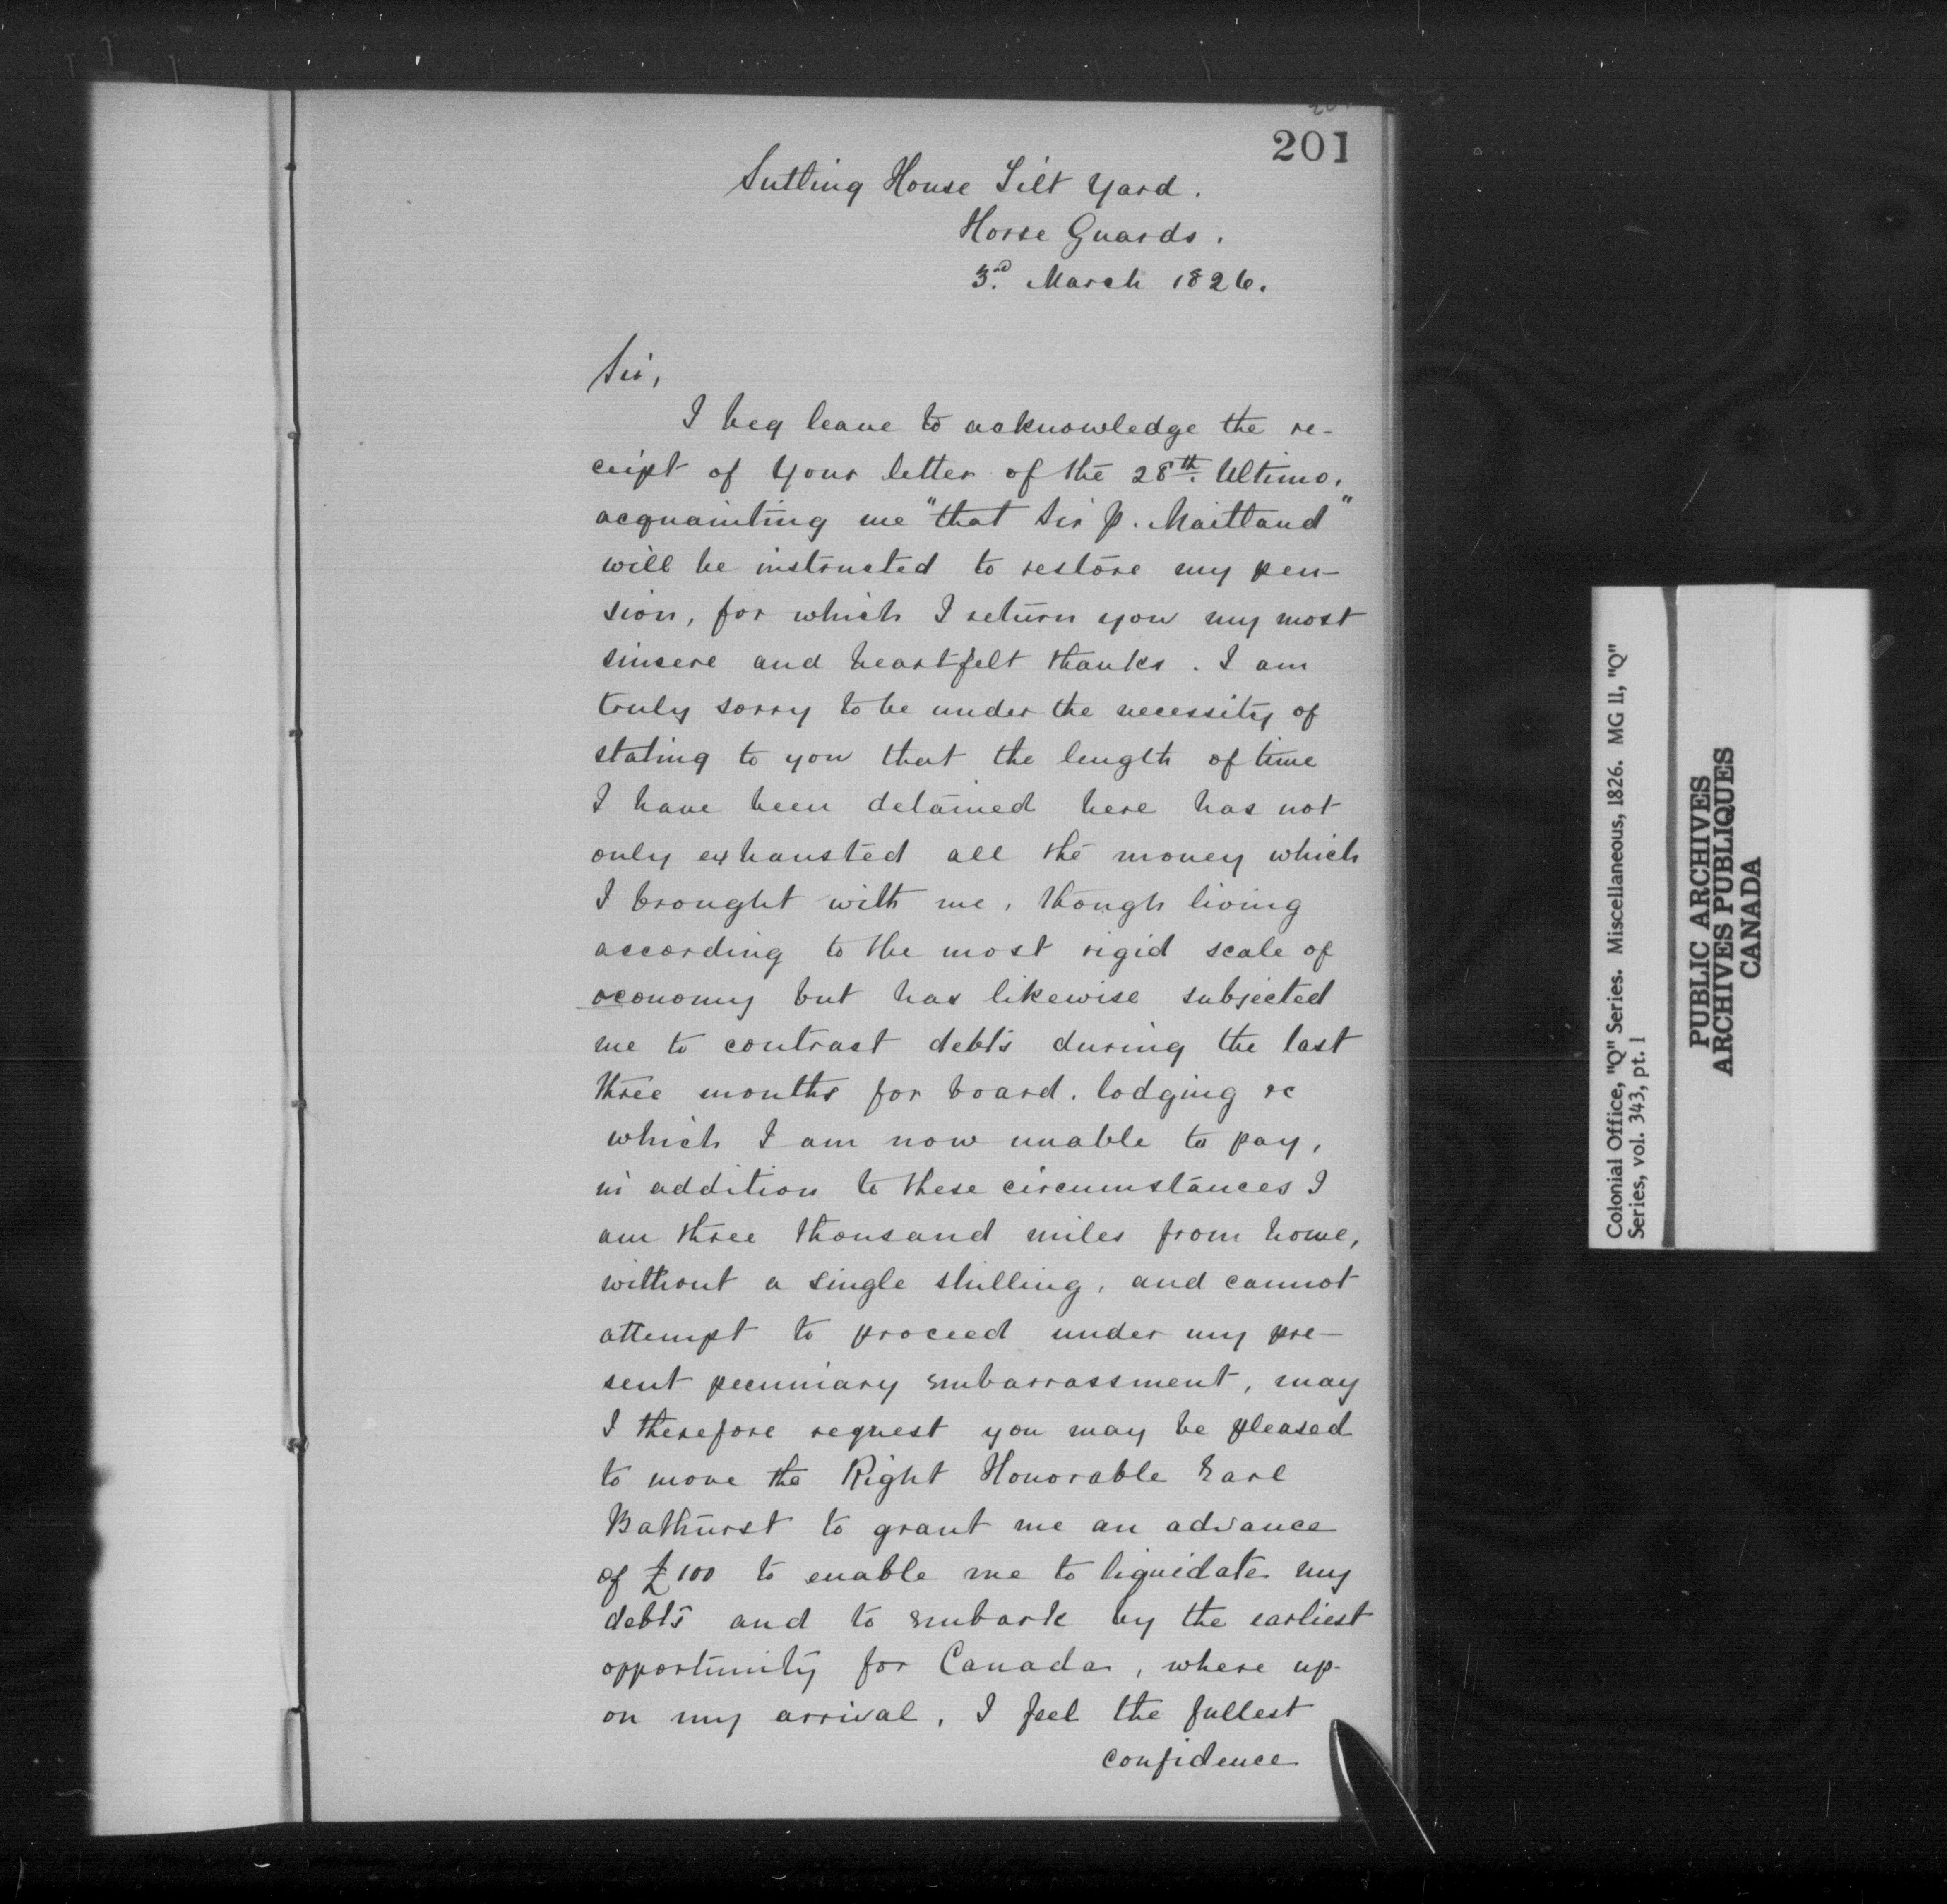 201
Sutling House Tilt Yard.
Horse Guards.
3rd. March 1826.
Sir,
I beg leave to acknowledge the re-
ceipt of your letter of the 28th. Ultimo,
acquainting me "that Sir P. Maitland"
will be instructed to restore my pen-
sion, for which I return you my most
sincere and heartfelt thanks. I am
truly sorry to be under the necessity of
stating to you that the length of time
I have been detained here has not
only exhausted all the money which
I brought with me, though living
according to the most rigid scale of
oconomy but has likewise subjected
me to contract debts during the last
three months for board, lodging &c
which I am now unable to pay,
in addition to these circumstances I
am three thousand miles from home,
without a single shilling, and cannot
attempt to proceed under my pre-
sent pecuniary embarrassment, may
I therefore request you may be pleased
to move the Right Honorable Earl
Bathurst to grant me an advance
of £100 to enable me to liquidate my
debts and to embark by the earliest
opportunity for Canada, where up-
on my arrival, I feel the fullest
confidence
Colonial Office, "Q" Series. Miscellaneous, 1826. MG 11, "Q"
Series, vol. 343, pt. 1
PUBLIC ARCHIVES
ARCHIVES PUBLIQUES
CANADA